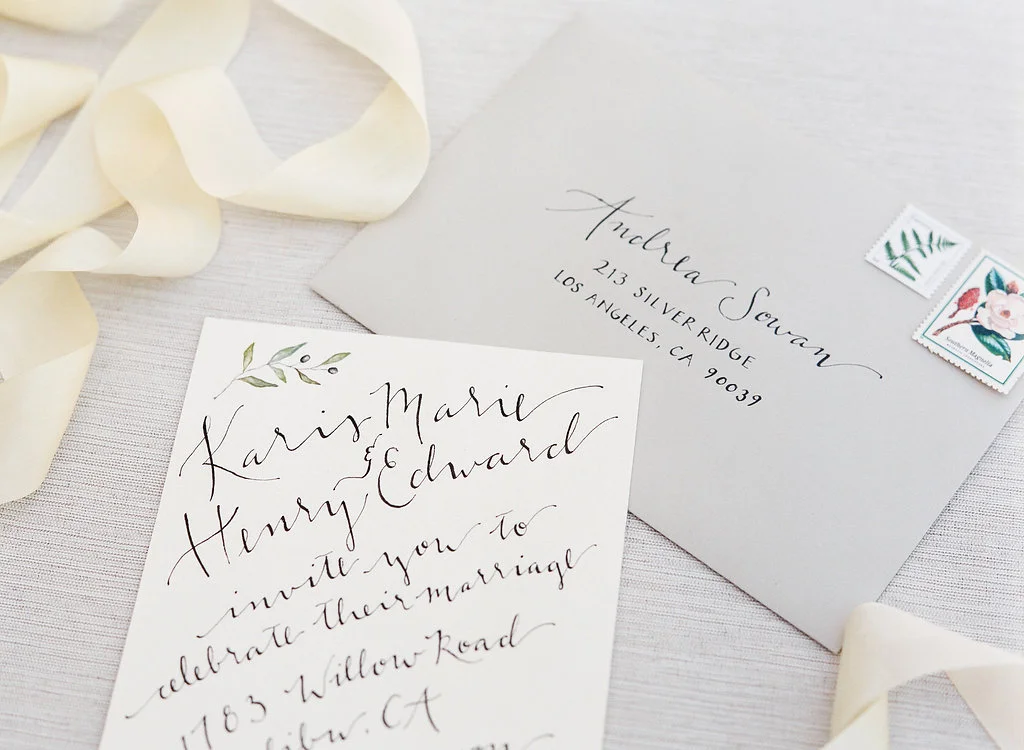 Karis Marie
&
Henry Edward
invite you to
celebrate their marriage
1783 Willow Road
CA
Andrea Sowan
213 SILVER RIDGE
LOS ANGELES, CA 90039
Southern Magnolia